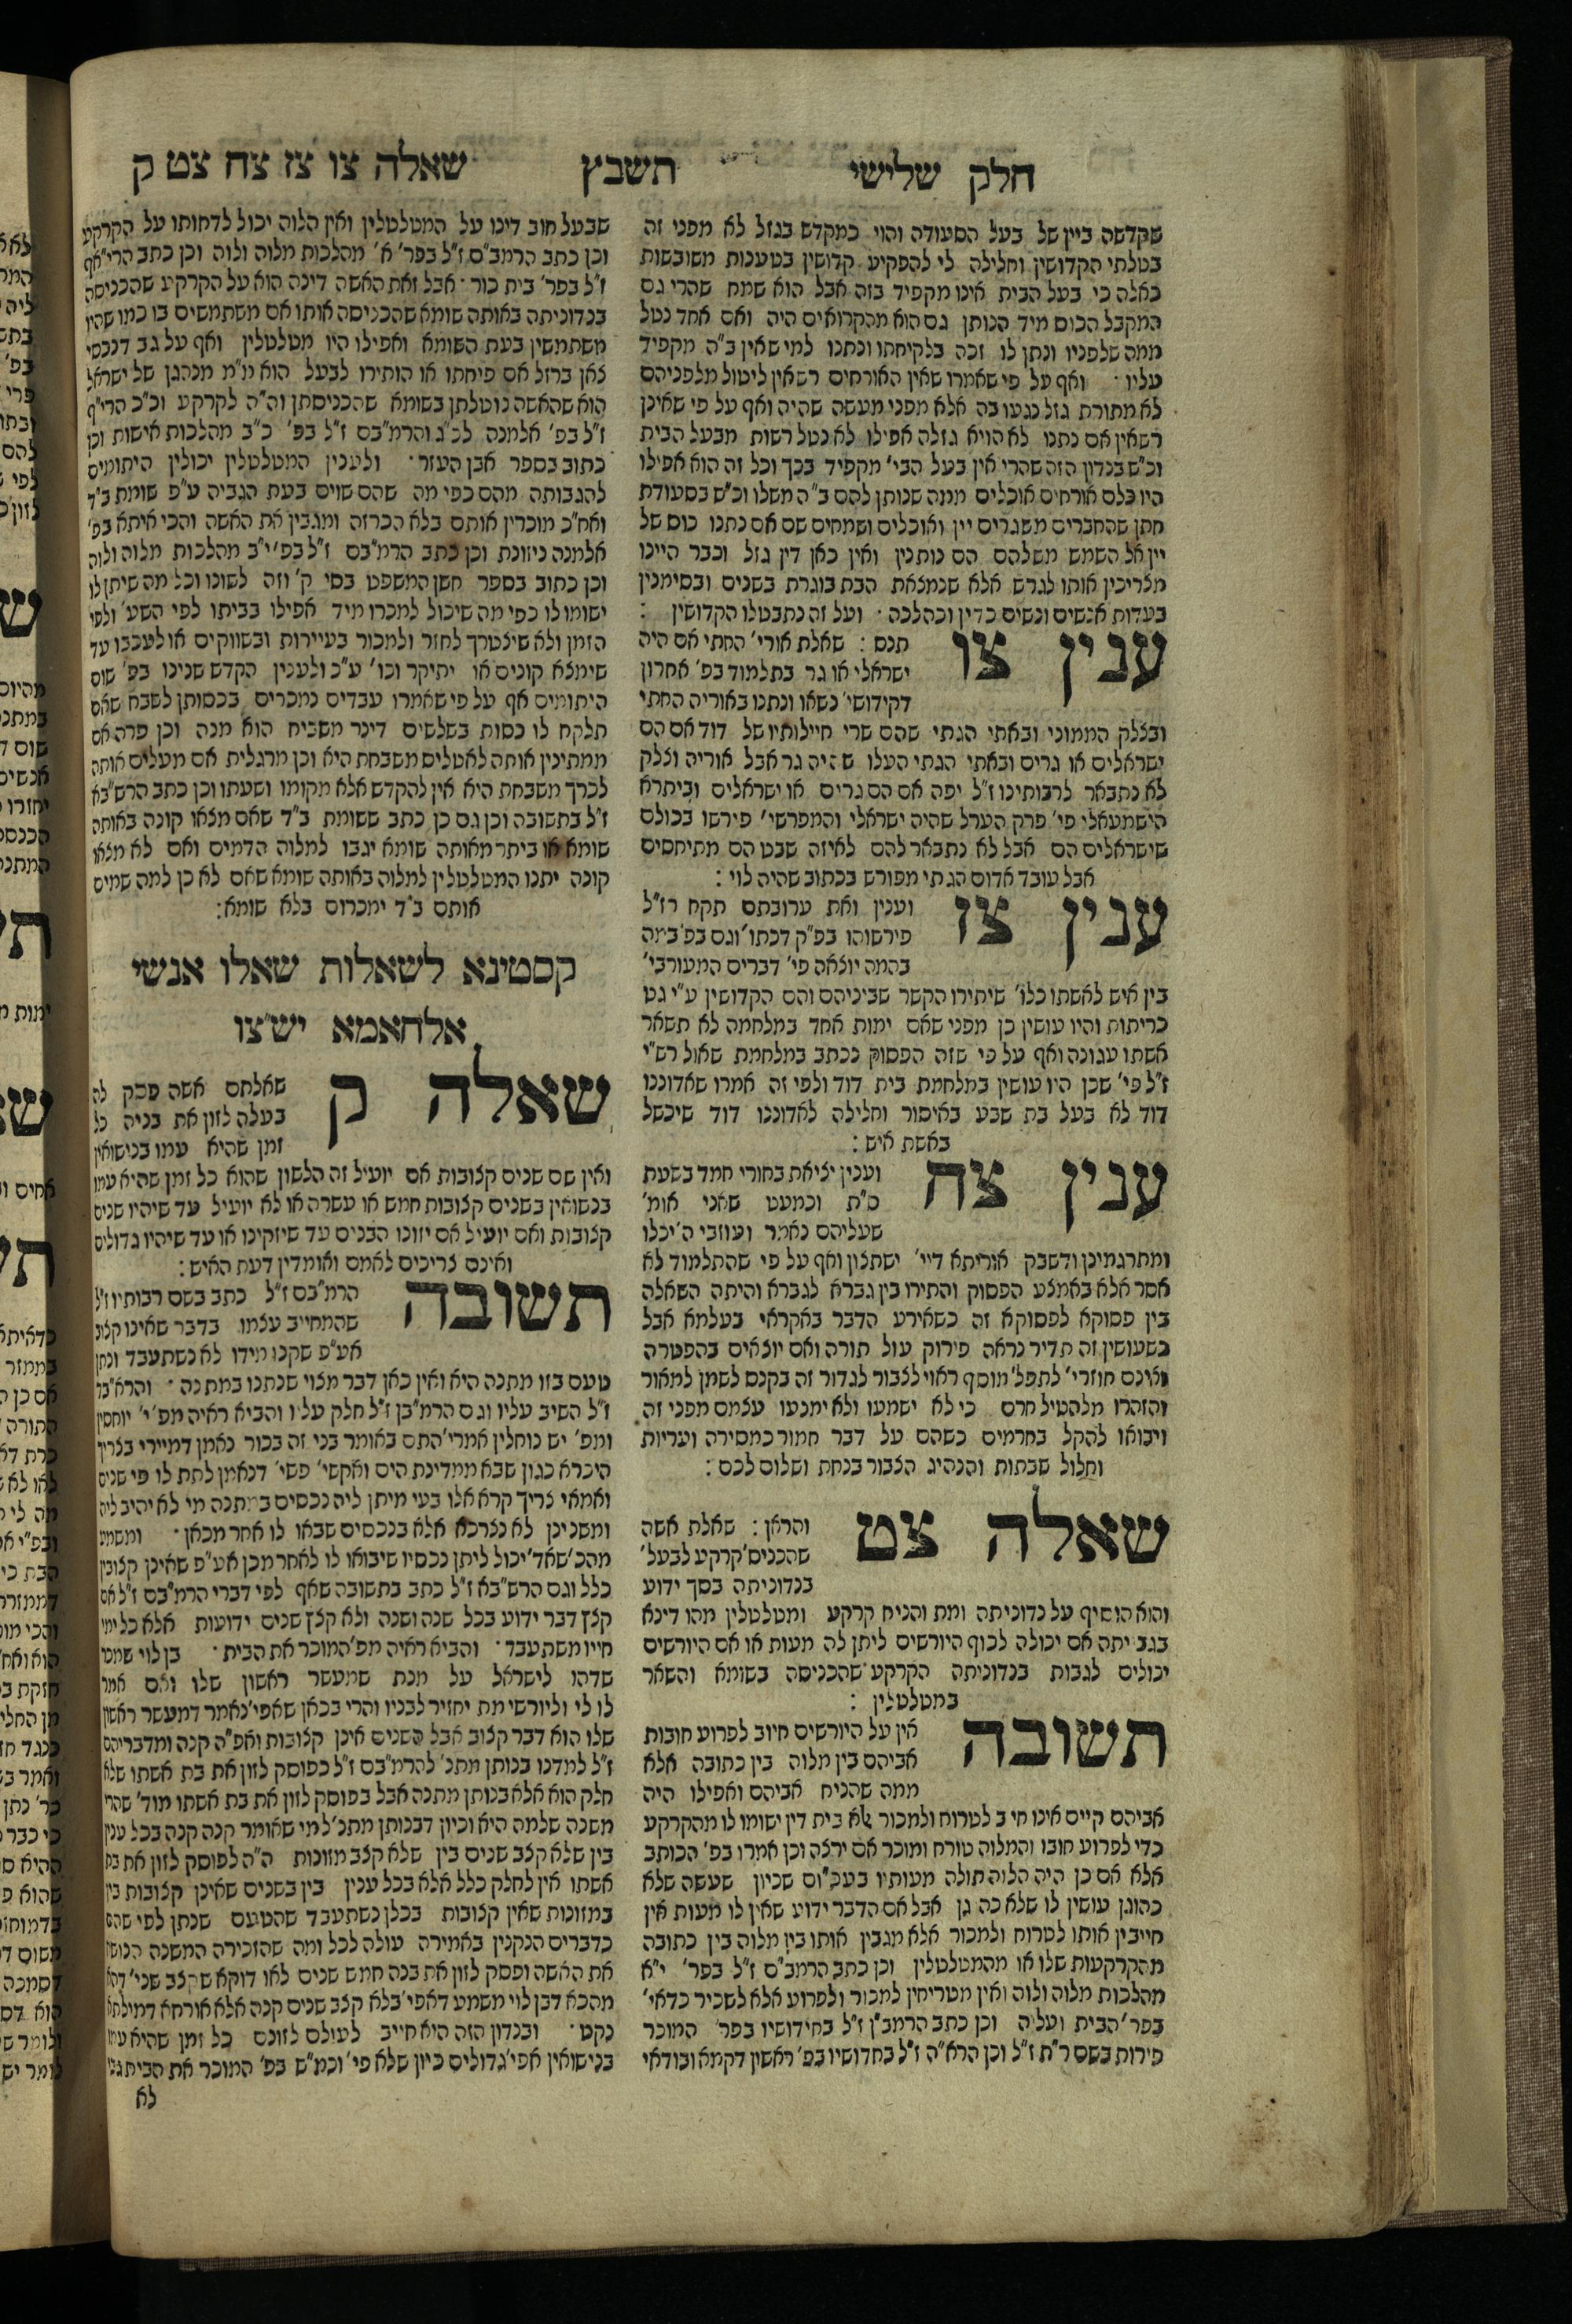 חלק שלישי תשבץ שאלה צו צז צח צט ק
שקדשה ביין של בעל הסעודה והוי כמקדש בגזל לא מפני זה
בטלתי הקדושין וחלילה לי להפקיע קדושין בטענות משובשות
כאלה כי בעל הבית אינו מקפיד בזה אבל הוא שמח שהרי גם
המקבל הכוס מיד הנותן גם הוא מהקרואים היה ואם אחד נטל
ממה שלפניו ונתן לו זכה בלקיחתו ונתנו למי שאין ב"ה מקפיד
עליו · ואף על פי שאמרו שאין האורחים רשאין ליטול מלפניהם
לא מתורת גזל נגעו בה אלא מפני מעשה שהיה ואף על פי שאינן
רשאין אם נתנו לא הויא גזלה אפילו לא נטל רשות מבעל הבית
וכ"ש בנדון הזה שהרי אין בעל הבי' מקפיד בכך וכל זה הוא אפילו
היו כלם אורחים אוכלים ממה שנותן להם ב"ה משלו וכ"ש בסעודת
חתן שהחברים משגרים יין ואוכלים ושמחים שם אם נתנו כוס של
יין אל השמש משלהם הם נותנין ואין כאן דין גזל וכבר היינו
מצריכין אותו לגרש אלא שנמצאת הבת בוגרת בשנים ובסימנין
בעדות אנשים ונשים כדין וכהלכה · ועל זה נתבטלו הקדושין :
ענין צו תנס : שאלת אורי' החתי אם היה
ישראלי או גר בתלמוד בפ' אחרון
דקידושי' נשאו ונתנו באוריה החתי
ובצלק העמוני ובאתי הגתי שהם שרי חיילותיו של דוד אם הם
ישראלים או גרים ובאתי הגתי העלו שהיה גר אבל אוריה וצלק
לא נתבאר לרבותינו ז"ל יפה אם הם גרים או ישראלים וביתרא
הישמעאלי פי' פרק הערל שהיה ישראלי והמפרשי' פירשו בכולם
שישראלים הם אבל לא נתבאר להם לאיזה שבט הם מתיחסים
אבל עובד אדום הגתי מפורש בכתוב שהיה לוי :
ענין צז וענין ואת ערובתם תקח רז"ל
פירשוהו בפ"ק דכתו' וגם בפ' במה
בהמה יוצאה פי' דברים המעורבי'
בין איש לאשתו כלו' שיתירו הקשר שביניהם והם הקדושין ע"י גט
כריתות והיו עושין כן מפני שאם ימות אחד במלחמה לא תשאר
אשתו עגונה ואף על פי שזה הפסוק נכתב במלחמת שאול רש"י
ז"ל פי' שכן היו עושין במלחמת בית דוד ולפי זה אמרו שאדוננו
דוד לא בעל בת שבע באיסור וחלילה לאדוננו דוד שיכשל
באשת איש :
ענין צח וענין יציאת בחורי חמד בשעת
ס"ת וכמעט שאני אומ'
שעליהם נאמר ועוזבי ה' יכלו
ומתרגמינן ודשבק אוריתא דיי' ישתצון ואף על פי שהתלמוד לא
אסר אלא באמצע הפסוק והתירו בין גברא לגברא והיתה השאלה
בין פסוקא לפסוקא זה כשאירע הדבר באקראי בעלמא אבל
כשעושין זה תדיר נראה פירוק עול תורה ואם יוצאים בהפטרה
ואינם חוזרי' לתפל' מוסף ראוי לצבור לגדור זה בקנס לשמן למאור
והזהרו מלהטיל חרם כי לא ישמעו ולא ימנעו עצמם מפני זה
ויבואו להקל בחרמים כשהם על דבר חמור כמסירה ועריות
וחלול שבתות והנהיג הצבור בנחת ושלום לכם :
שאלה צט והראן : שאלת אשה
שהכניס' קרקע לבעל'
בנדוניתה בסך ידוע
והוא הוסיף על נדוניתה ומת והניח קרקע ומטלטלין מהו דינא
בגביתה אם יכולה לכוף היורשים ליתן לה מעות או אם היורשים
יכולים לגבות בנדוניתה הקרקע שהכניסה בשומא והשאר
במטלטלין :
תשובה אין על היורשים חיוב לפרוע חובות
אביהם בין מלוה בין כתובה אלא
ממה שהניח אביהם ואפילו היה
אביהם קיים אינו חייב לטרוח ולמכור אלא בית דין ישומו לו מהקרקע
כדי לפרוע חובו והמלוה טורח ומוכר אם ירצה וכן אמרו בפ' הכותב
אלא אם כן היה הלוה תולה מעותיו בעכ"ום שכיון שעשה שלא
כהוגן עושין לו שלא כהגן אבל אם הדבר ידוע שאין לו מעות אין
חייבין אותו לטרוח ולמכור אלא מגבין אותו בין מלוה בין כתובה
מהקרקעות שלו או מהמטלטלין וכן כתב הרמב"ם ז"ל בפר' י"א
מהלכות מלוה ולוה ואין מטריחין למכור ולפרוע אלא לשכיר כדאי'
בפר' הבית ועליה וכן כתב הרמב"ן ז"ל בחידושיו בפר' המוכר
פירות בשם ר"ת ז"ל וכן הרא"ה ז"ל בחדושיו בפ' ראשון דקמא ובודאי
שבעל חוב דינו על המטלטלין ואין הלוה יכול לדחותו על הקרקע
וכן כתב הרמב"ם ז"ל בפר' א' מהלכות מלוה ולוה וכן כתב הרי"אף
ז"ל בפר' בית כור · אבל זאת האשה דינה הוא על הקרקע שהכניסה
בנדוניתה באותה שומא שהכניסה אותו אם משתמשים בו כמו שהיו
משתמשין בעת השומא ואפילו היו מטלטלין ואף על גב דנכסי
צאן ברזל אם פיחתו או הותירו לבעל הוא מ"מ מנהגן של ישראל
הוא שהאשה נוטלתן בשומא שהכניסתן וה"ה לקרקע וכ"כ הרי"ף
ז"ל בפ' אלמנה לכ"ג והרמ"בם ז"ל בפ' כ"ב מהלכות אישות וכן
כתוב בספר אבן העזר · ולענין המטלטלין יכולין היתומים
להגבותה מהם כפי מה שהם שוים בעת הגביה ע"פ שומת ב"ד
ואח"כ מוכרין אותם בלא הכרזה ומגבין את האשה והכי איתא בפ'
אלמנה ניזונת וכן כתב הרמ"בם ז"ל בפ' י"ב מהלכות מלוה ולוה
וכן כתוב בספר חשן המשפט בסי' ק' וזה לשונו וכל מה שיתן לו
ישומו לו כפי מה שיכול למכרו מיד אפילו בביתו לפי השע' ולפי
הזמן ולא שיצטרך לחזר ולמכור בעיירות ובשווקים או לעכבו עד
שימצא קונים או יתיקר וכו' ע"כ ולענין הקדש שנינו בפ' שום
היתומים אף על פי שאמרו עבדים נמכרים בכסותן לשבח שאם
תלקח לו כסות בשלשים דינר משביח הוא מנה וכן פרה אם
ממתינין אותה לאטלים משבחת היא וכן מרגלית אם מעלים אותה
לכרך משבחת היא אין להקדש אלא מקומו ושעתו וכן כתב הרש"בא
ז"ל בתשובה וכן גם כן כתב ששומת ב"ד שאם מצאו קונה באותה
שומא או ביתר מאותה שומא יגבו למלוה הדמים ואם לא מצאו
קונה יתנו המטלטלין למלוה באותה שומא שאם לא כן למה שמים
אותם ב"ד ימכרום בלא שומא :
קסטינא לשאלות שאלו אנשי
אלחאמא יש"צו
שאלה ק שאלתם אשה פסק לה
בעלה לזון את בניה כל
זמן שהיא עמו בנישואין
ואין שם שנים קצובות אם יועיל זה הלשון שהוא כל זמן שהיא עמו
בנשואין בשנים קצובות חמש או עשרה או לא יועיל עד שיהיו שנים
קצובות ואם יועיל אם יזונו הבנים עד שיזקינו או עד שיהיו גדולים
ואינם צריכים לאמם ואומדין דעת האיש :
תשובה הרמ"בם ז"ל כתב בשם רבותיו ז"ל
שהמחייב עצמו בדבר שאינו קצוב
אע"פ שקנו מידו לא נשתעבד ונתן
טעם בזו מתנה היא ואין כאן דבר מצוי שנתנו במתנה · והרא"בד
ז"ל השיב עליו וגם הרמ"בן ז"ל חלק עליו והביא ראיה מפ' י' יוחסין
ומפ' יש נוחלין אמרי' התם באומר בני זה בכור נאמן דמיירי בצריך
היכרא כגון שבא ממדינת הים ואקשי' פשי' דנאמן לתת לו פי שנים
ואמאי צריך קרא אלו בעי מיתן ליה נכסים במתנה מי לא יהיב ליה
ומשנינן לא נצרכא אלא בנכסים שבאו לו אחר מכאן · ומשמע
מהכ' שאד' יכול ליתן נכסיו שיבואו לו לאחר מכן אע"פ שאינן קצובין
כלל וגם הרש"בא ז"ל כתב בתשובה שאף לפי דברי הרמ"בם ז"ל אם
קצץ דבר ידוע בכל שנה ושנה ולא קצץ שנים ידועות אלא כל ימי
חייו משתעבד · והביא ראיה מפ' המוכר את הבית · בן לוי שמכר
שדהו לישראל על מנת שמעשר ראשון שלו ואם אמר
לו לי וליורשי מת יחזיר לבניו והרי בכאן שאפי' נאמר דמעשר ראשון
שלו הוא דבר קצוב אבל השנים אינן קצובות ואפ"ה קנה ומדבריהם
ז"ל למדנו בנותן מתנ' להרמ"בם ז"ל כפוסק לזון את בת אשתו שלא
חלק הוא אלא בנותן מתנה אבל בפוסק לזון את בת אשתו מוד' שהרי
משנה שלמה היא וכיון דבנותן מתנ' למי שאומר קנה קנה בכל ענין
בין שלא קצב שנים בין שלא קצב מזונות ה"ה לפוסק לזון את בת
אשתו אין לחלק כלל אלא בכל ענין בין בשנים שאינן קצובות בין
במזונות שאין קצובות בכלן נשתעבד שהטעם שנתן לפי שהם
כדברים הנקנין באמירה עולה לכל ומה שהזכירה המשנה הנושא
את האשה ופסק לזון את בנה חמש שנים לאו דוקא שקצב שני' דהא
מהכא דבן לוי משמע דאפי' בלא קצב שנים קנה אלא אורחא דמילתא
נקט · ובנדון הזה הוא חייב לעולם לזונם כל זמן שהיא עמו
בנישואין אפי' גדולים כיון שלא פי' וכמ"ש בפ' המוכר את הבית גבי
לא